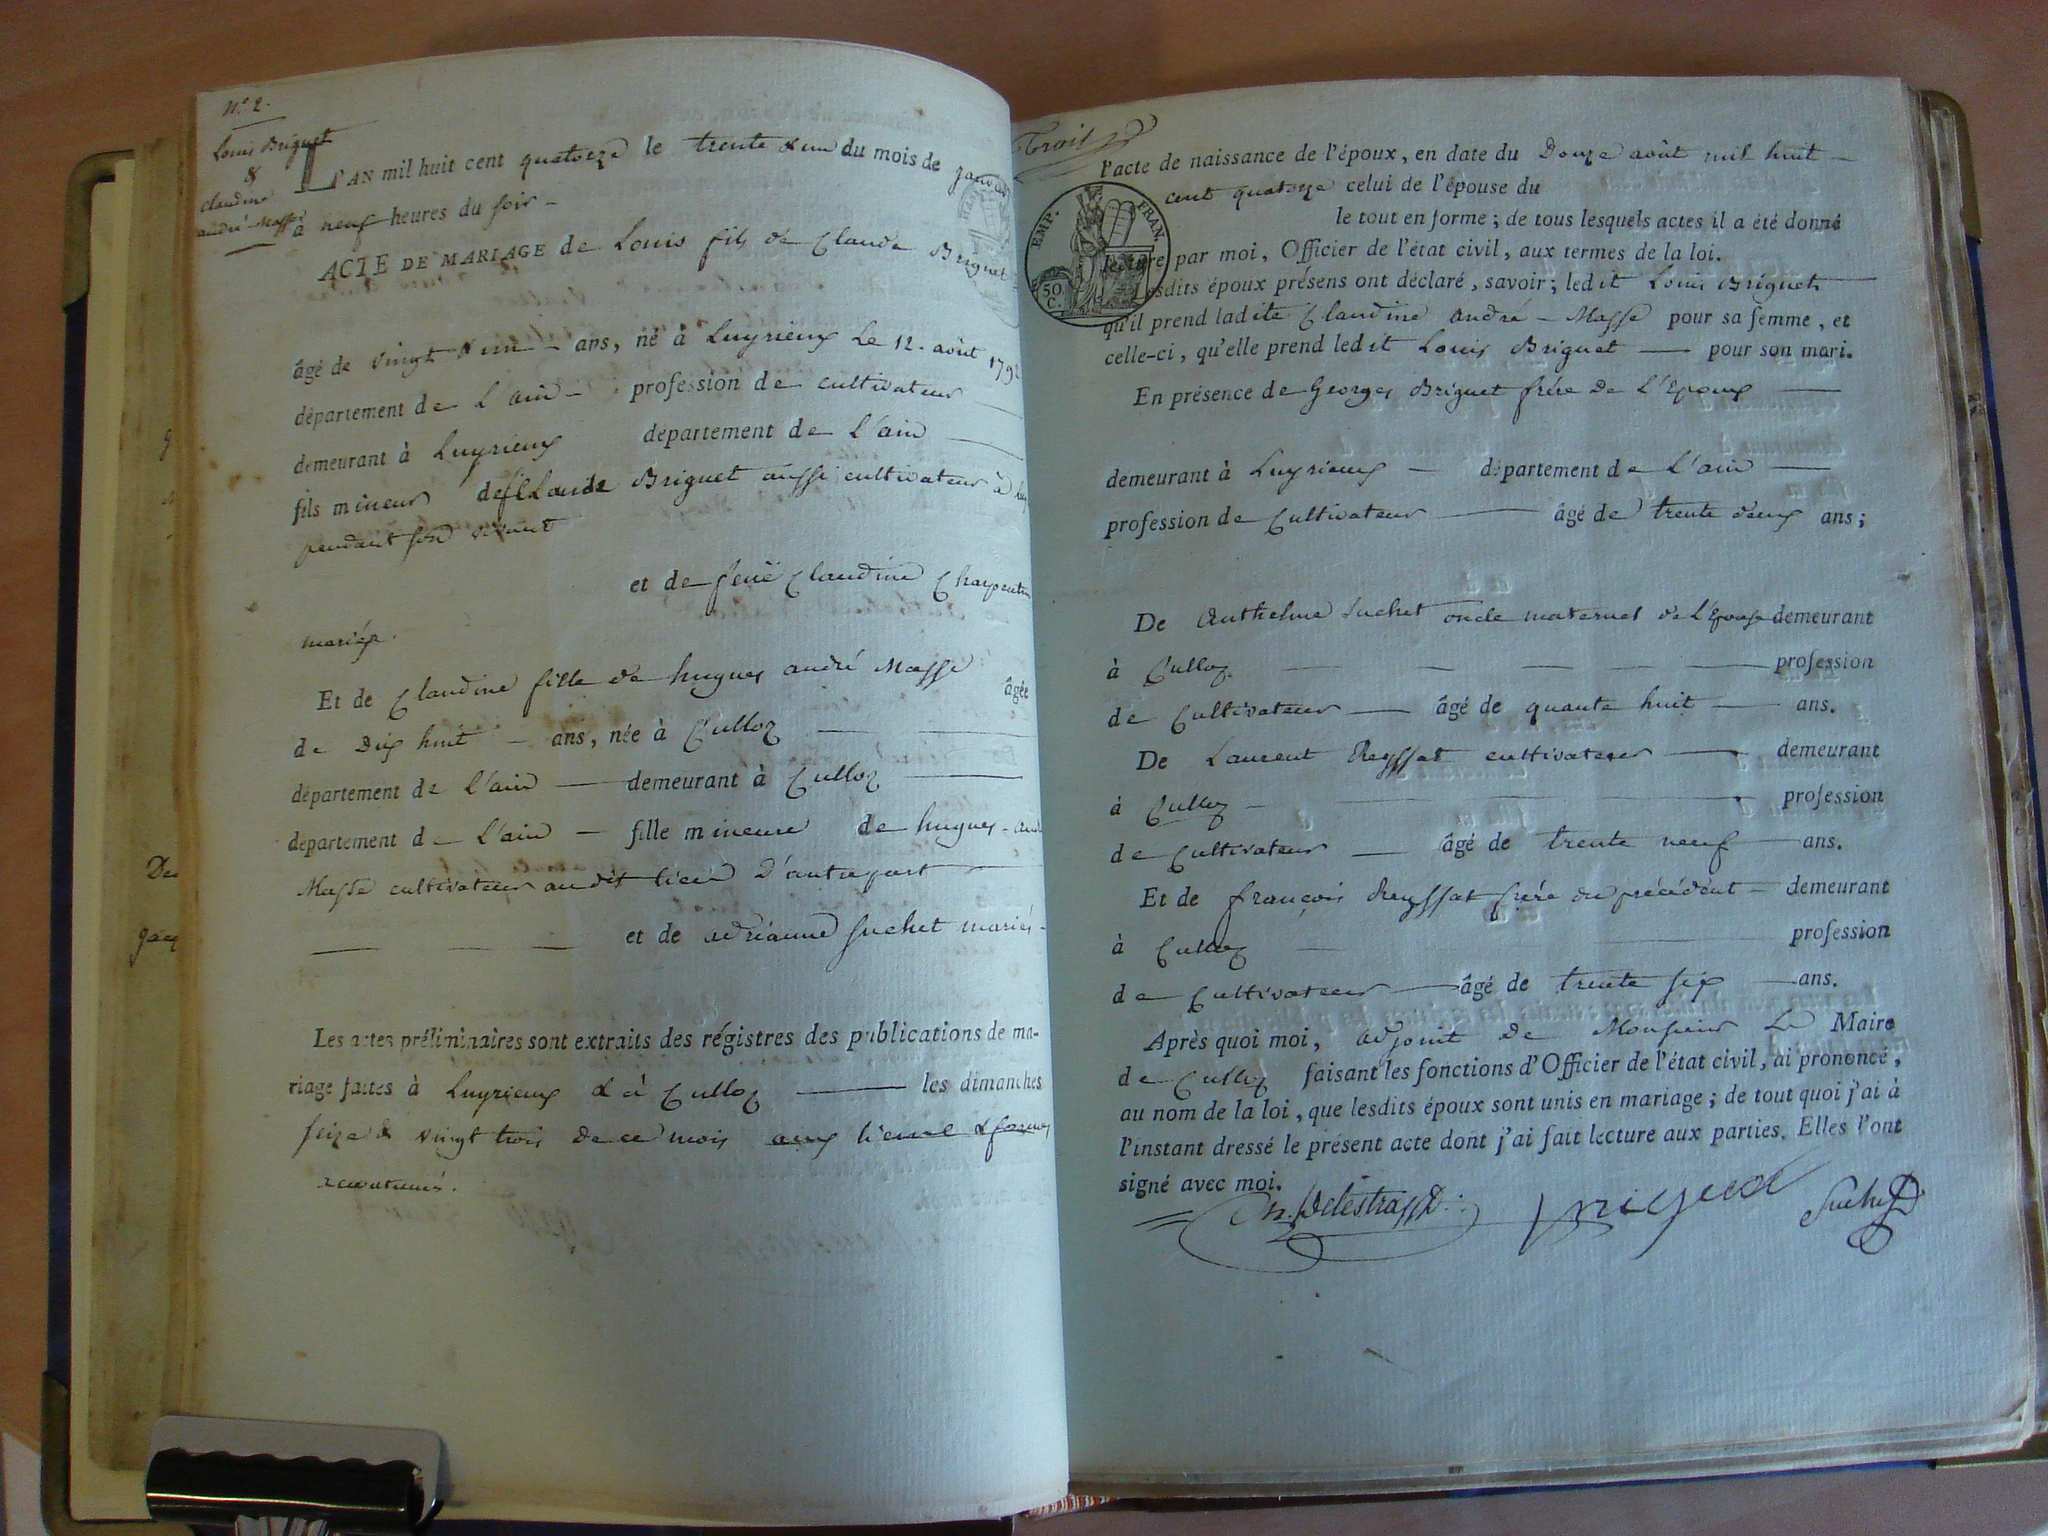 N.º 2.
Louis Briguet
&
claudine
andré-Masse
L'AN mil huit cent quatorze le trente & un du mois de janvier
à neuf heures du soir -
ACTE DE MARIAGE de Louis fils de Claude Briguet
âgé de vingt & un - ans, né à Luyrieux Le 12. août 1792
département de L'ain - profession de cultivateur
demeurant à Luyrieux département de L'ain
fils mineur de Claude Briguet aussi cultivateur à
pendant son vivant
et de feue Claudine Charpentier
mariés.
Et de Claudine fille de hugues andré Masse âgée
de Dix huit - ans, née à Culloz
département de L'ain - demeurant à Culloz
département de L'ain - fille mineure de hugues - andré
Masse cultivateur audit lieu d'autre part
et de adrianne Suchet mariés -
Les actes préliminaires sont extraits des régistres des publications de ma-
riage faites à Luyrieux & à Culloz les dimanches
seize & vingt trois de ce mois aux lieux & formes
accoutumés.
Trois
EMP. FRAN.
50 C.
l'acte de naissance de l'époux, en date du Douze août mil huit -
cent quatorze celui de l'épouse du
le tout en forme ; de tous lesquels actes il a été donné
lecture par moi, Officier de l'état civil, aux termes de la loi.
Lesdits époux présens ont déclaré, savoir ; ledit Louis Briguet
qu'il prend ladite Claudine andré - Masse pour sa femme, et
celle-ci, qu'elle prend ledit Louis Briguet - pour son mari.
En présence de Georges Briguet frère de L'Epoux
demeurant à Luyrieux - département de L'ain -
profession de Cultivateur âgé de trente deux ans ;
De Anthelme Suchet oncle maternel de L'Epouse demeurant
à Culloz profession
de Cultivateur - âgé de quante huit - ans.
De Laurent Reyssat cultivateur demeurant
à Culloz - profession
de Cultivateur - âgé de trente neuf - ans.
Et de françois Reyssat frère du précédent - demeurant
à Culloz profession
de Cultivateur - âgé de trente six - ans.
Après quoi moi, adjoint de Monsieur Le Maire
de Culloz faisant les fonctions d'Officier de l'état civil, ai prononcé,
au nom de la loi, que lesdits époux sont unis en mariage ; de tout quoi j'ai à
l'instant dressé le présent acte dont j'ai fait lecture aux parties. Elles l'ont
signé avec moi.
Delestra Briguet Suchet